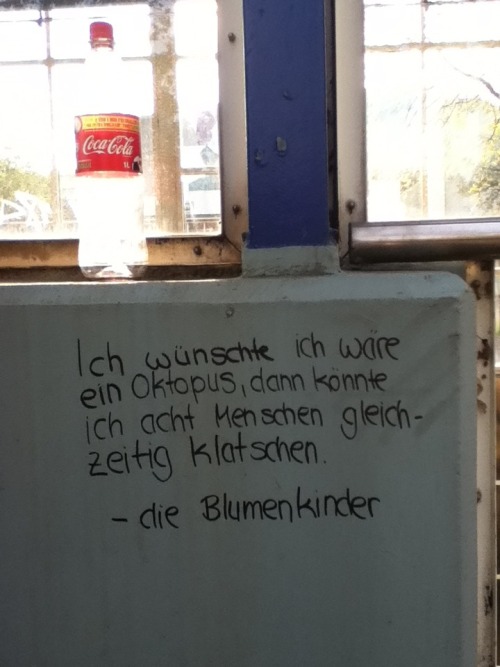 Coca-Cola
1L
Ich wünschte ich wäre
ein Oktopus, dann könnte
ich acht Menschen gleich-
zeitig klatschen.
- die Blumenkinder